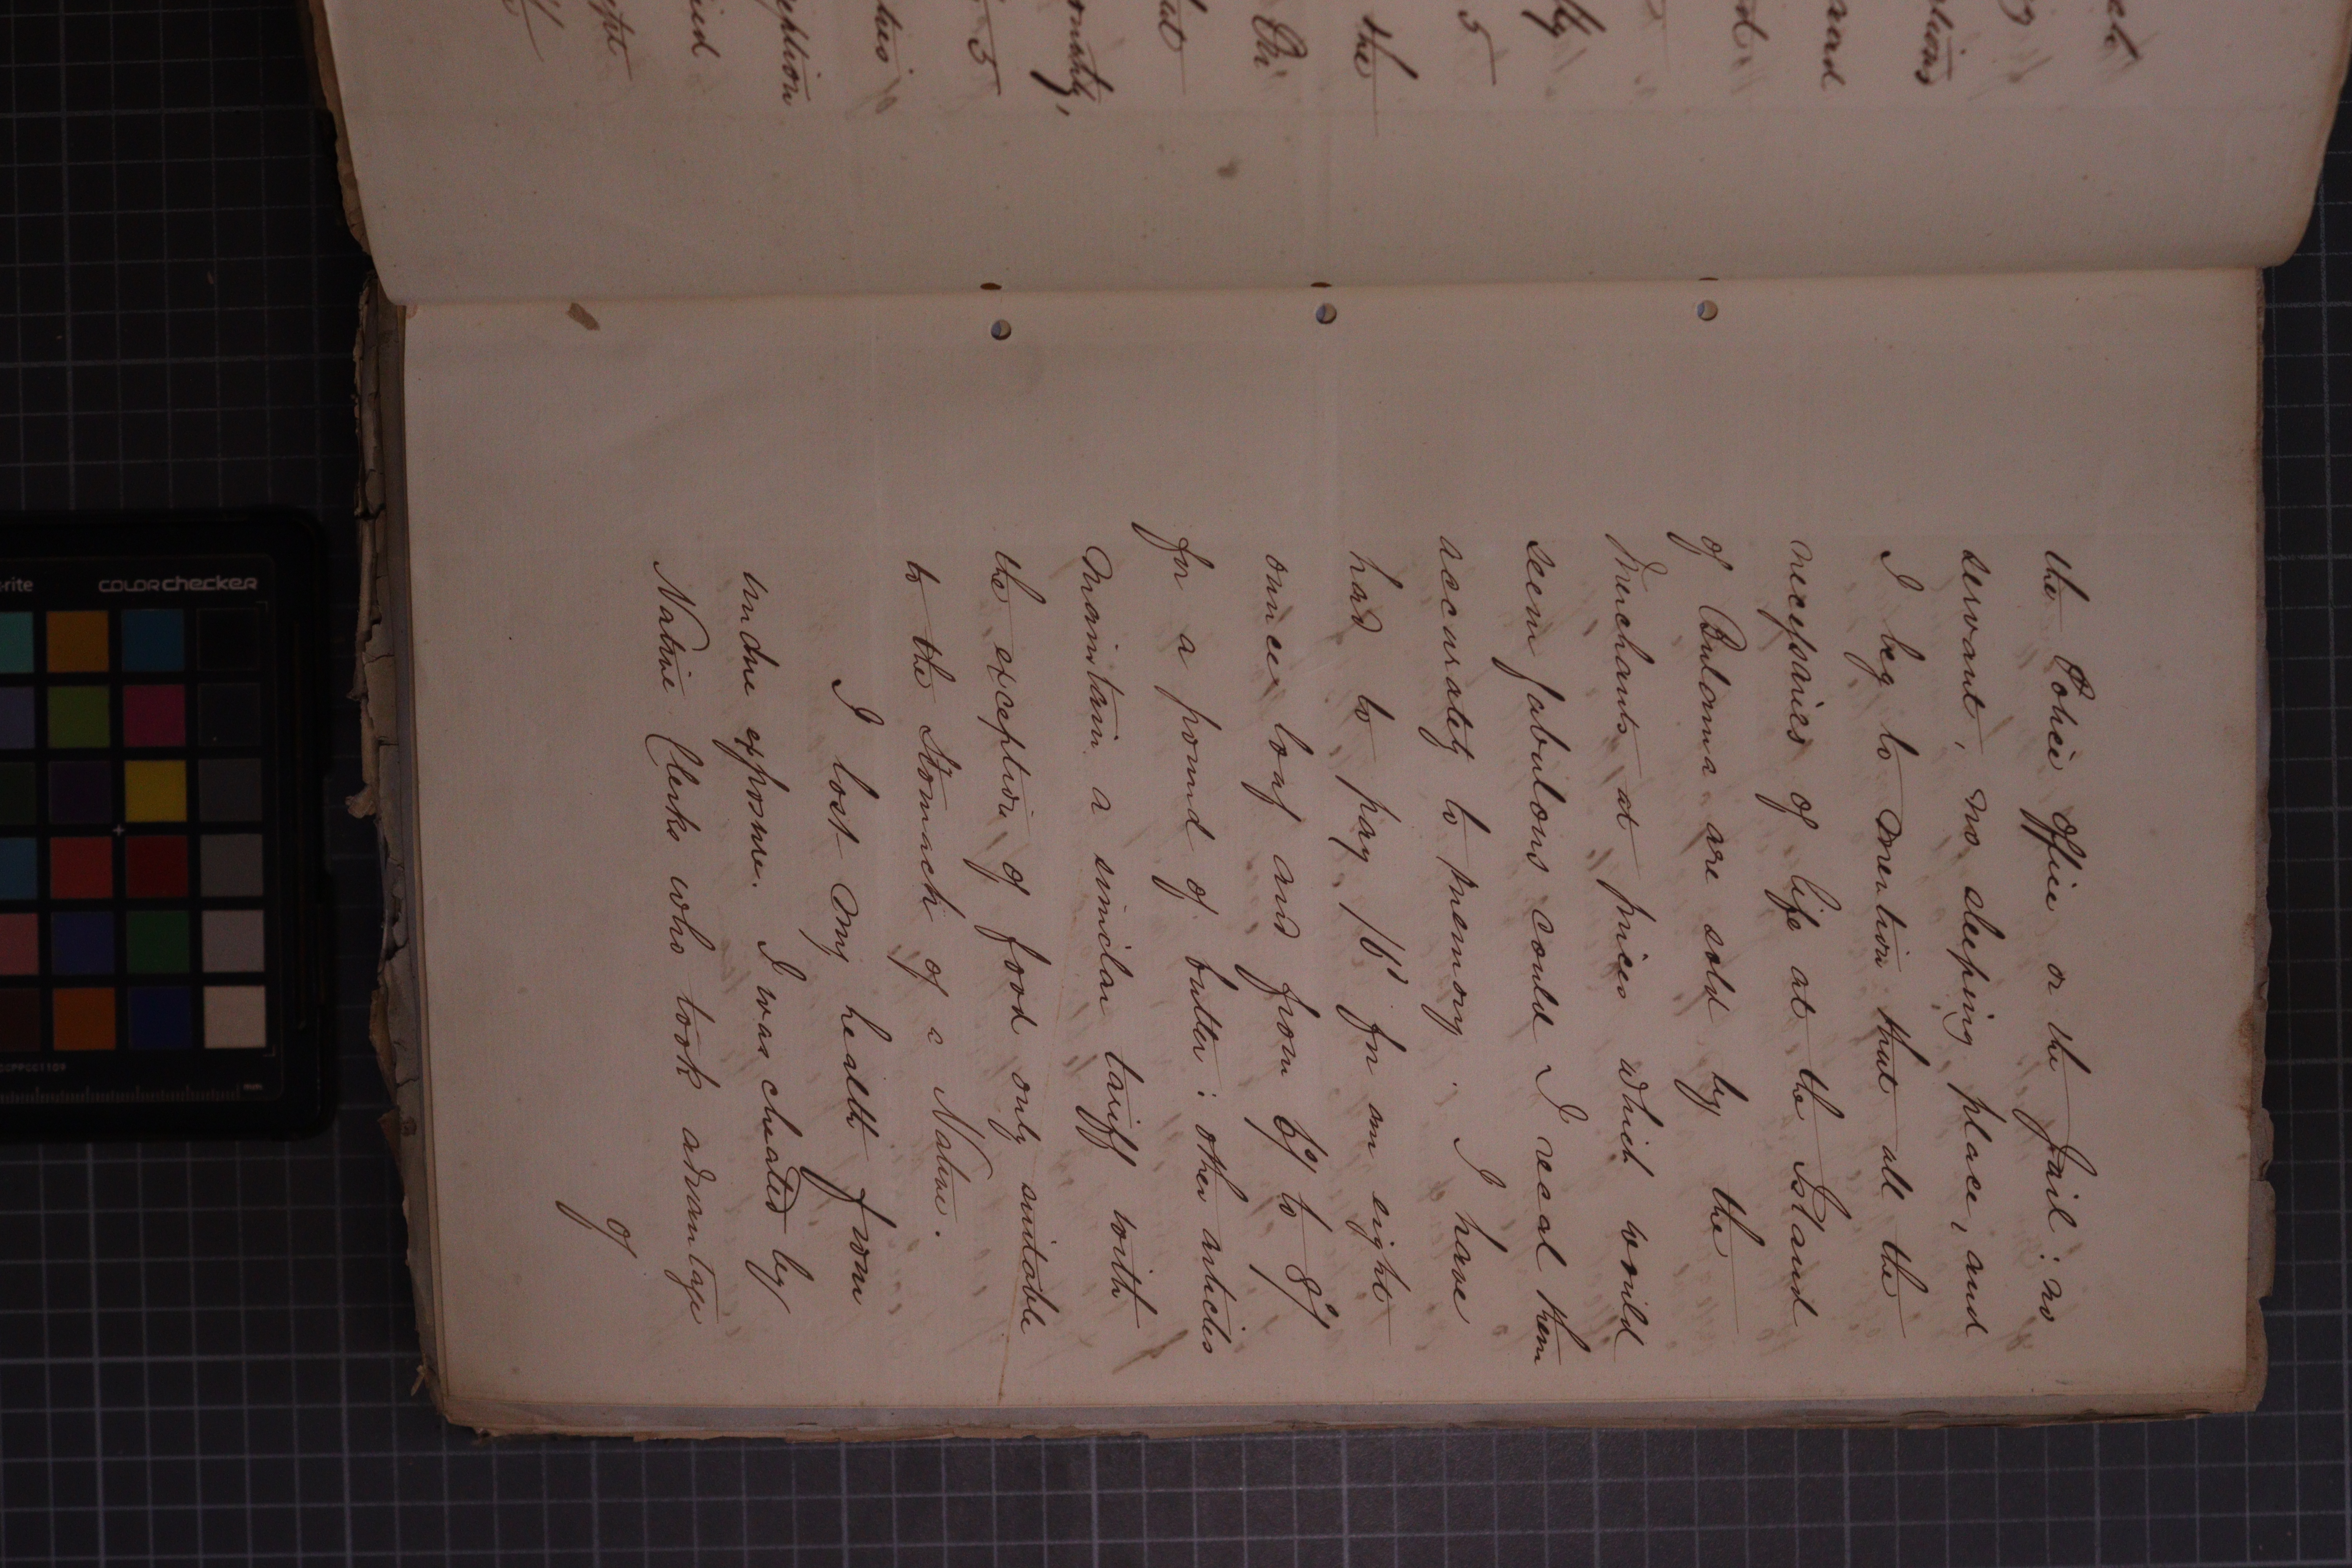 the Police Office or the Jail: no
servant, no sleeping place, and
I beg to mention that all the
necessaries of life at the Island
of Bulama are sold by the
Merchants at prices which would
seem fabulous could I recal them
accurately to memory. I have
had to pay 1/6 for an eight
ounce loaf and from 6/ to 8/
for a pound of butter: other articles
maintain a similar tariff with
the exception of food only suitable
to the Stomach of a Native.
I lost my health from
undue exposure. I was cheated by
Native Clerks who took advantage
of